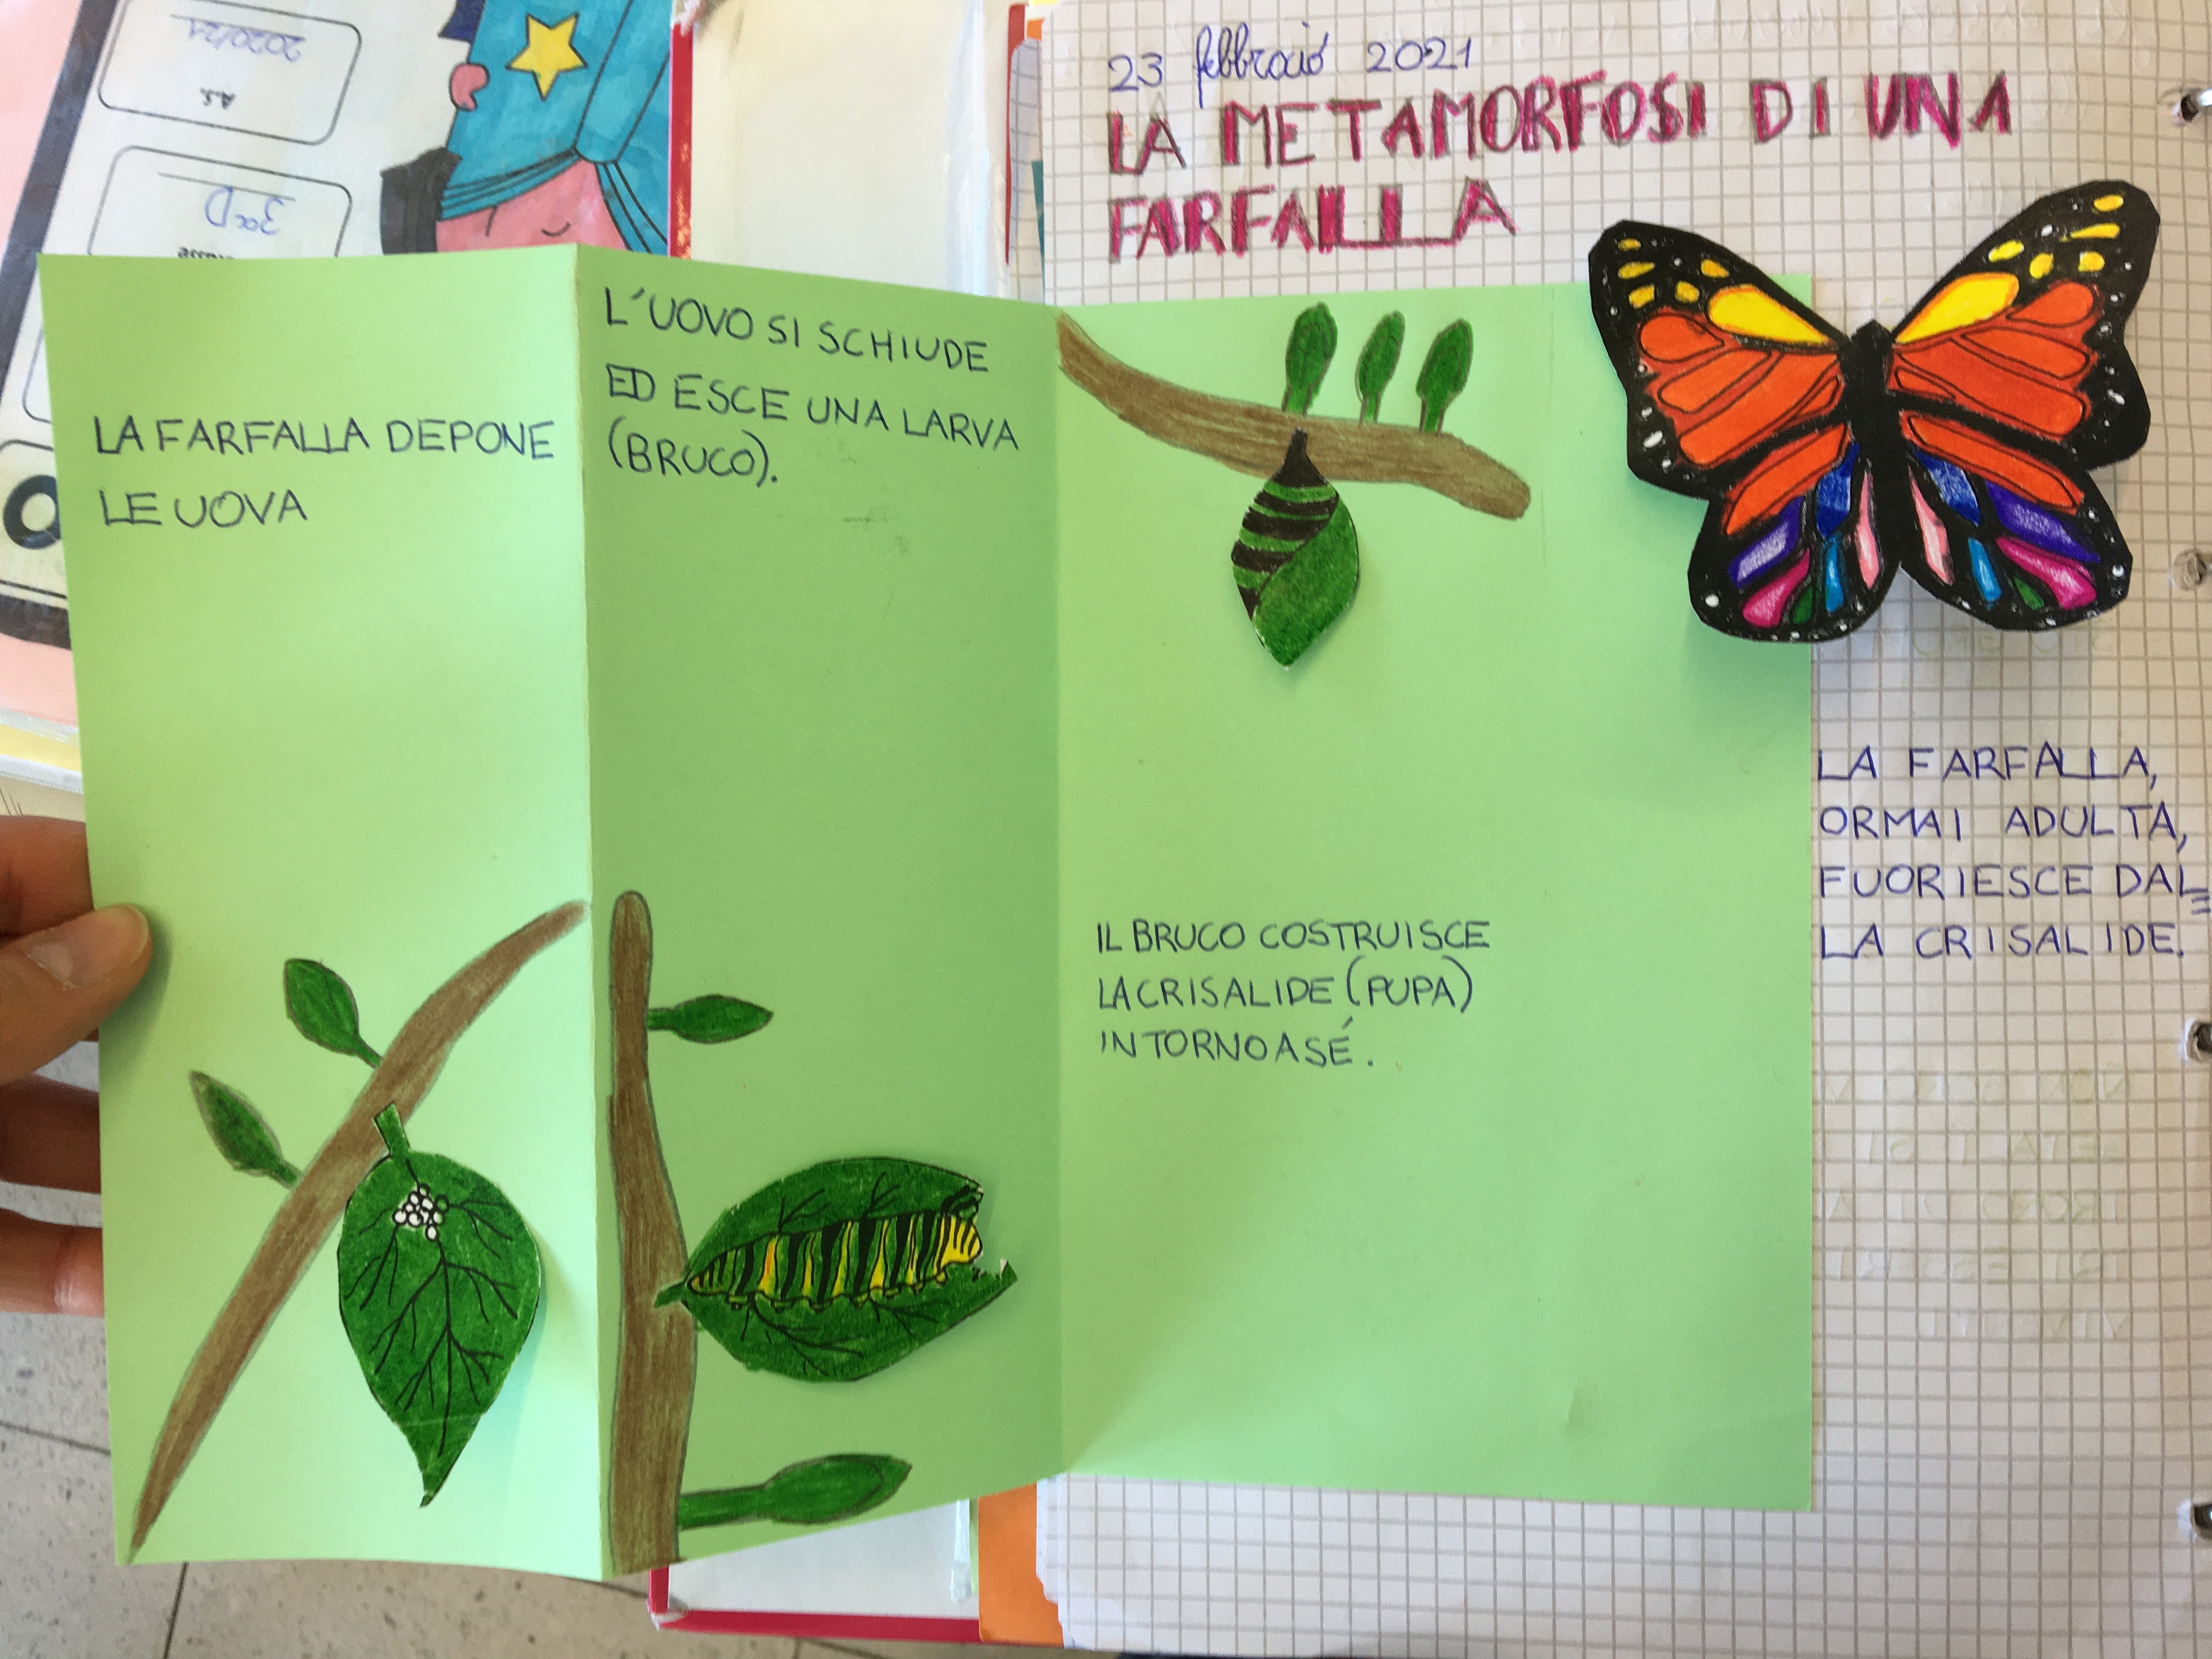 2020/21
A.S.
3ª D
23 febbraio 2021
LA METAMORFOSI DI UNA
FARFALLA
LA FARFALLA DEPONE
LE UOVA
L'UOVO SI SCHIUDE
ED ESCE UNA LARVA
(BRUCO).
IL BRUCO COSTRUISCE
LA CRISALIDE (PUPA)
INTORNO A SÉ.
LA FARFALLA,
ORMAI ADULTA,
FUORIESCE DAL=
LA CRISALIDE.